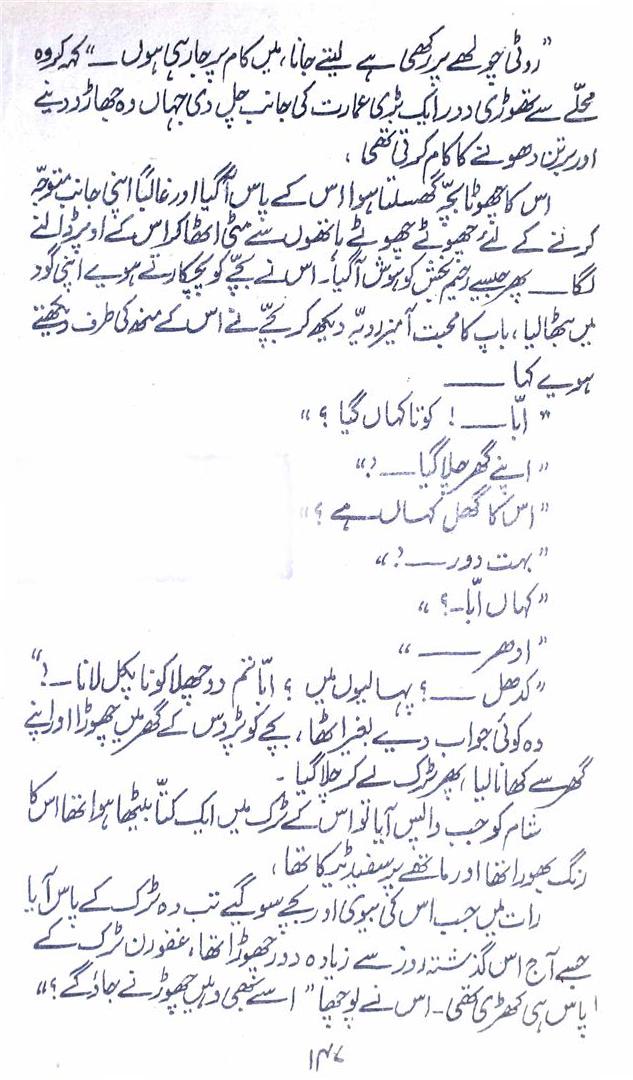 ”روٹی چولھے پر رکھی ہے لیتے جانا، میں کام پر جا رہی ہوں ــــ“ کہہ کر وہ
محلّے سے تھوڑی دور ایک بڑی عمارت کی جانب چل دی جہاں وہ جھاڑو دینے
اور برتن دھونے کا کام کرتی تھی ۔
اس کا چھوٹا بچّہ گھسلتا ہوا اس کے پاس آگیا اور غالباً اپنی جانب متوجّہ
کرنے کے لئے چھوٹے چھوٹے ہاتھوں سے مٹی اٹھا کر اس کے اوپر ڈالنے
لگا ــــ پھر جیسے رحیم بخش کو ہوش آگیا۔ اس نے بچّے کو پچکارتے ہویے اپنی گود
میں بٹھا لیا، باپ کا محبت آمیز رویّہ دیکھ کر بچّے نے اس کے منھ کی طرف دیکھتے
ہویے کہا ــــــــ
”ابّا ــــ ! کوتا کہاں گیا ؟“
”اپنے گھر چلا گیا ــــ !“
”اس کا گھل کہاں ہے ؟“
”بہت دور ــــ !“
”کہاں ابّا ـ؟“
”ادھر ــــــــ“
”کدھل ــــ ؟ پہالیوں میں ؟ ابّا تم دوچھلا کوتا پکل لانا ــ !“
وہ کوئی جواب دیے بغیر اٹھا، بچے کو پڑوس کے گھر میں چھوڑا اور اپنے
گھر سے کھانا لیا، پھر ٹرک لے کر چلا گیا ۔
شام کو جب واپس آیا تو اس کے ٹرک میں ایک کتّا بیٹھا ہوا تھا اس کا
رنگ بھورا تھا اور ماتھے پر سفید ٹیکا تھا ،
رات میں جب اس کی بیوی اور بچے سو گیے تب وہ ٹرک کے پاس آیا
جسے آج اس گذشتہ روز سے زیادہ دور چھوڑا تھا، غفورن ٹرک کے
پاس ہی کھڑی تھی۔ اس نے پوچھا ”اسے بھی وہیں چھوڑنے جاؤگے ؟“
۱۴۷